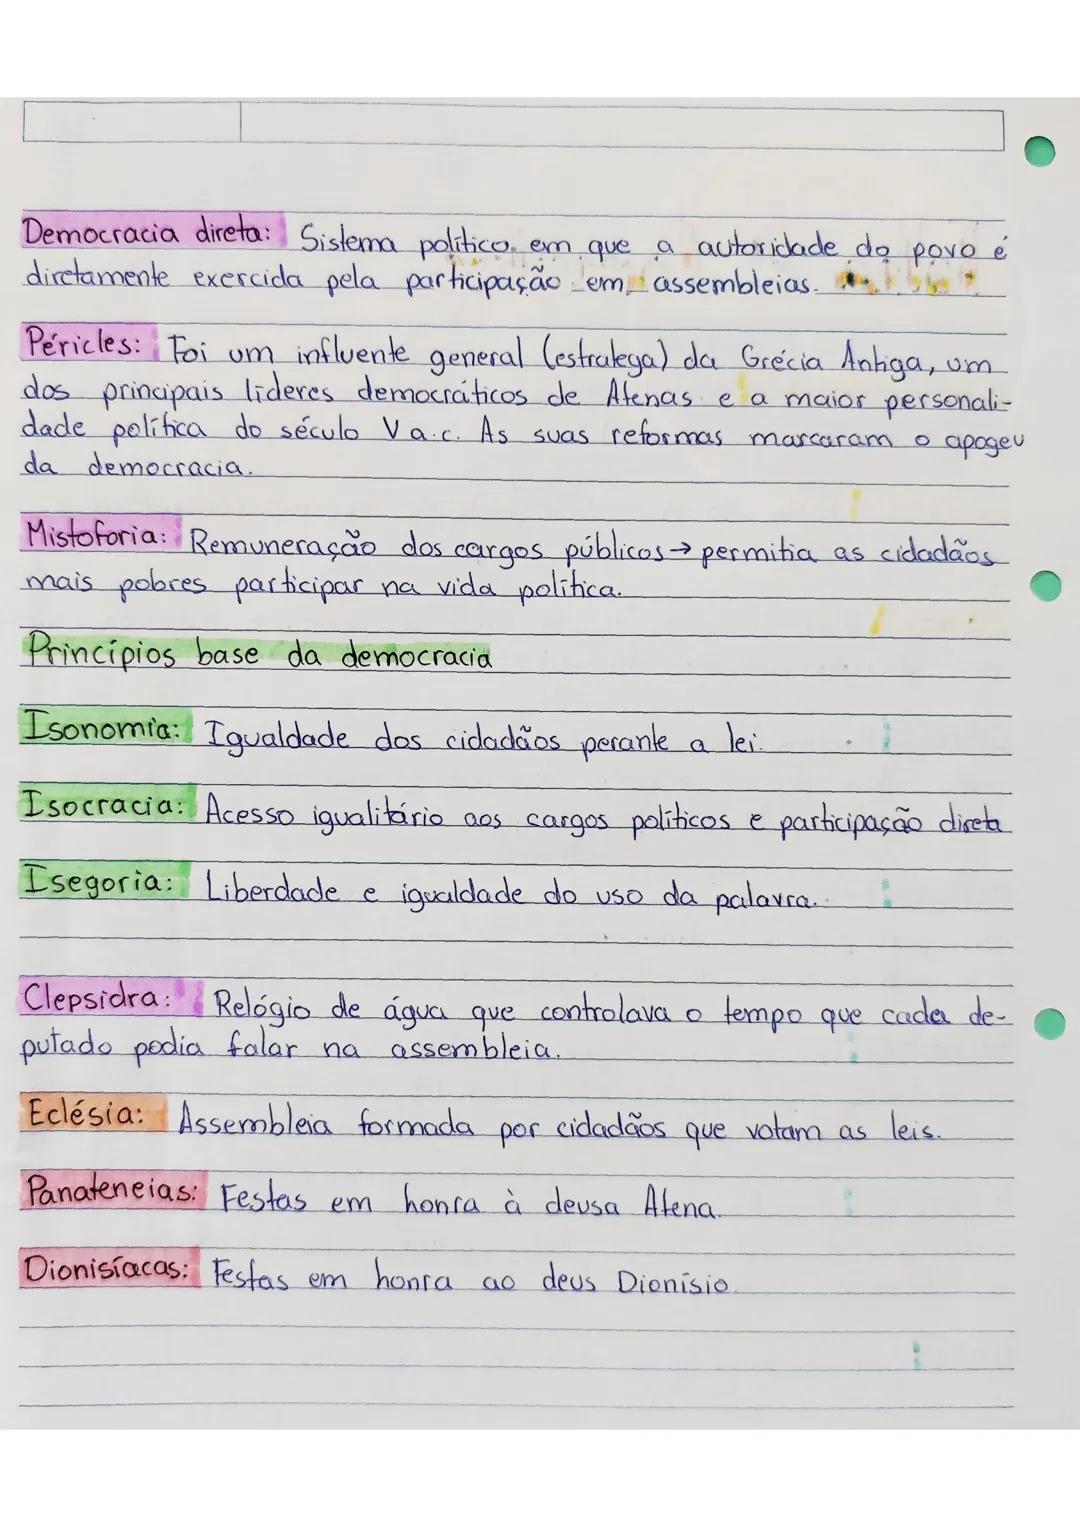 Democracia direta: Sistema político em que a autoridade do povo é
diretamente exercida pela participação em assembleias.
Péricles: Foi um influente general (estratega) da Grécia Antiga, um
dos principais líderes democráticos de Atenas e a maior personali-
dade política do século V a.c. As suas reformas marcaram o apogeu
da democracia.
Mistoforia: Remuneração dos cargos públicos → permitia as cidadãos
mais pobres participar na vida política.
Princípios base da democracia
Isonomia: Igualdade dos cidadãos perante a lei.
Isocracia: Acesso igualitário aos cargos políticos e participação direta
Isegoria: Liberdade e igualdade do uso da palavra.
Clepsidra: Relógio de água que controlava o tempo que cada de-
putado podia falar na assembleia.
Eclésia: Assembleia formada por cidadãos que votam as leis.
Panateneias: Festas em honra à deusa Atena.
Dionisíacas: Festas em honra ao deus Dionísio.